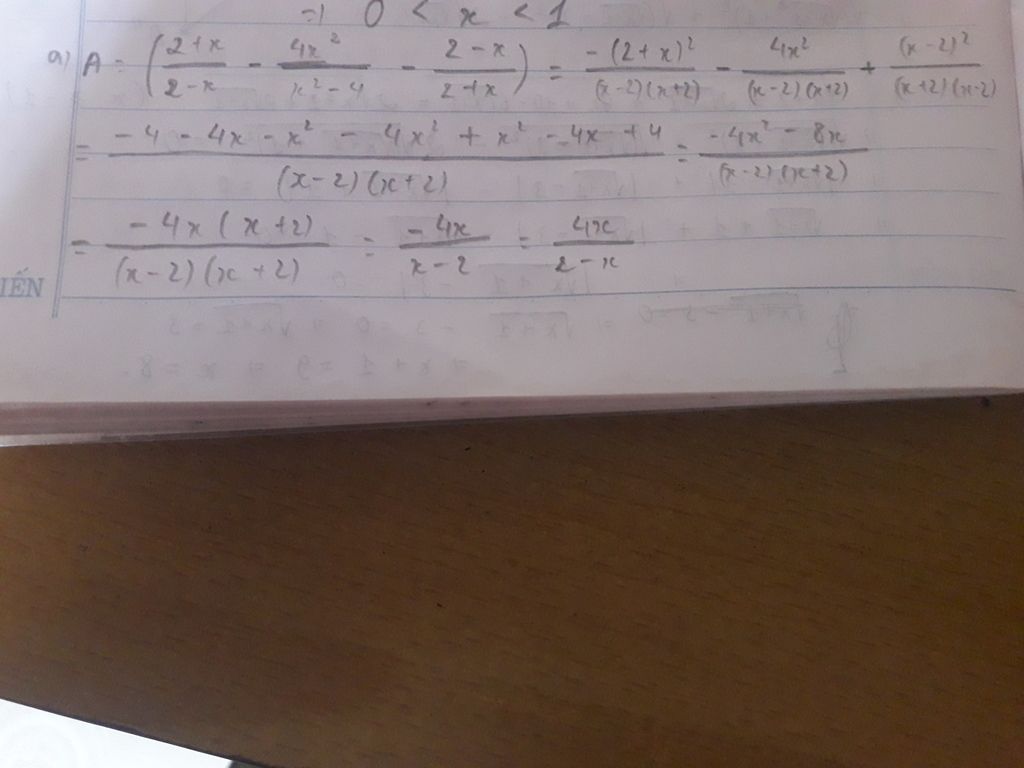 => 0 < x < 1
a) A = ( (2+x)/(2-x) - 4x²/(x²-4) - (2-x)/(2+x) ) = -(2+x)²/((x-2)(x+2)) - 4x²/((x-2)(x+2)) + (x-2)²/((x+2)(x-2))
= (-4 - 4x - x² - 4x² + x² - 4x + 4)/((x-2)(x+2)) = (-4x² - 8x)/((x-2)(x+2))
= -4x(x+2)/((x-2)(x+2)) = -4x/(x-2) = 4x/(2-x)
IẾN